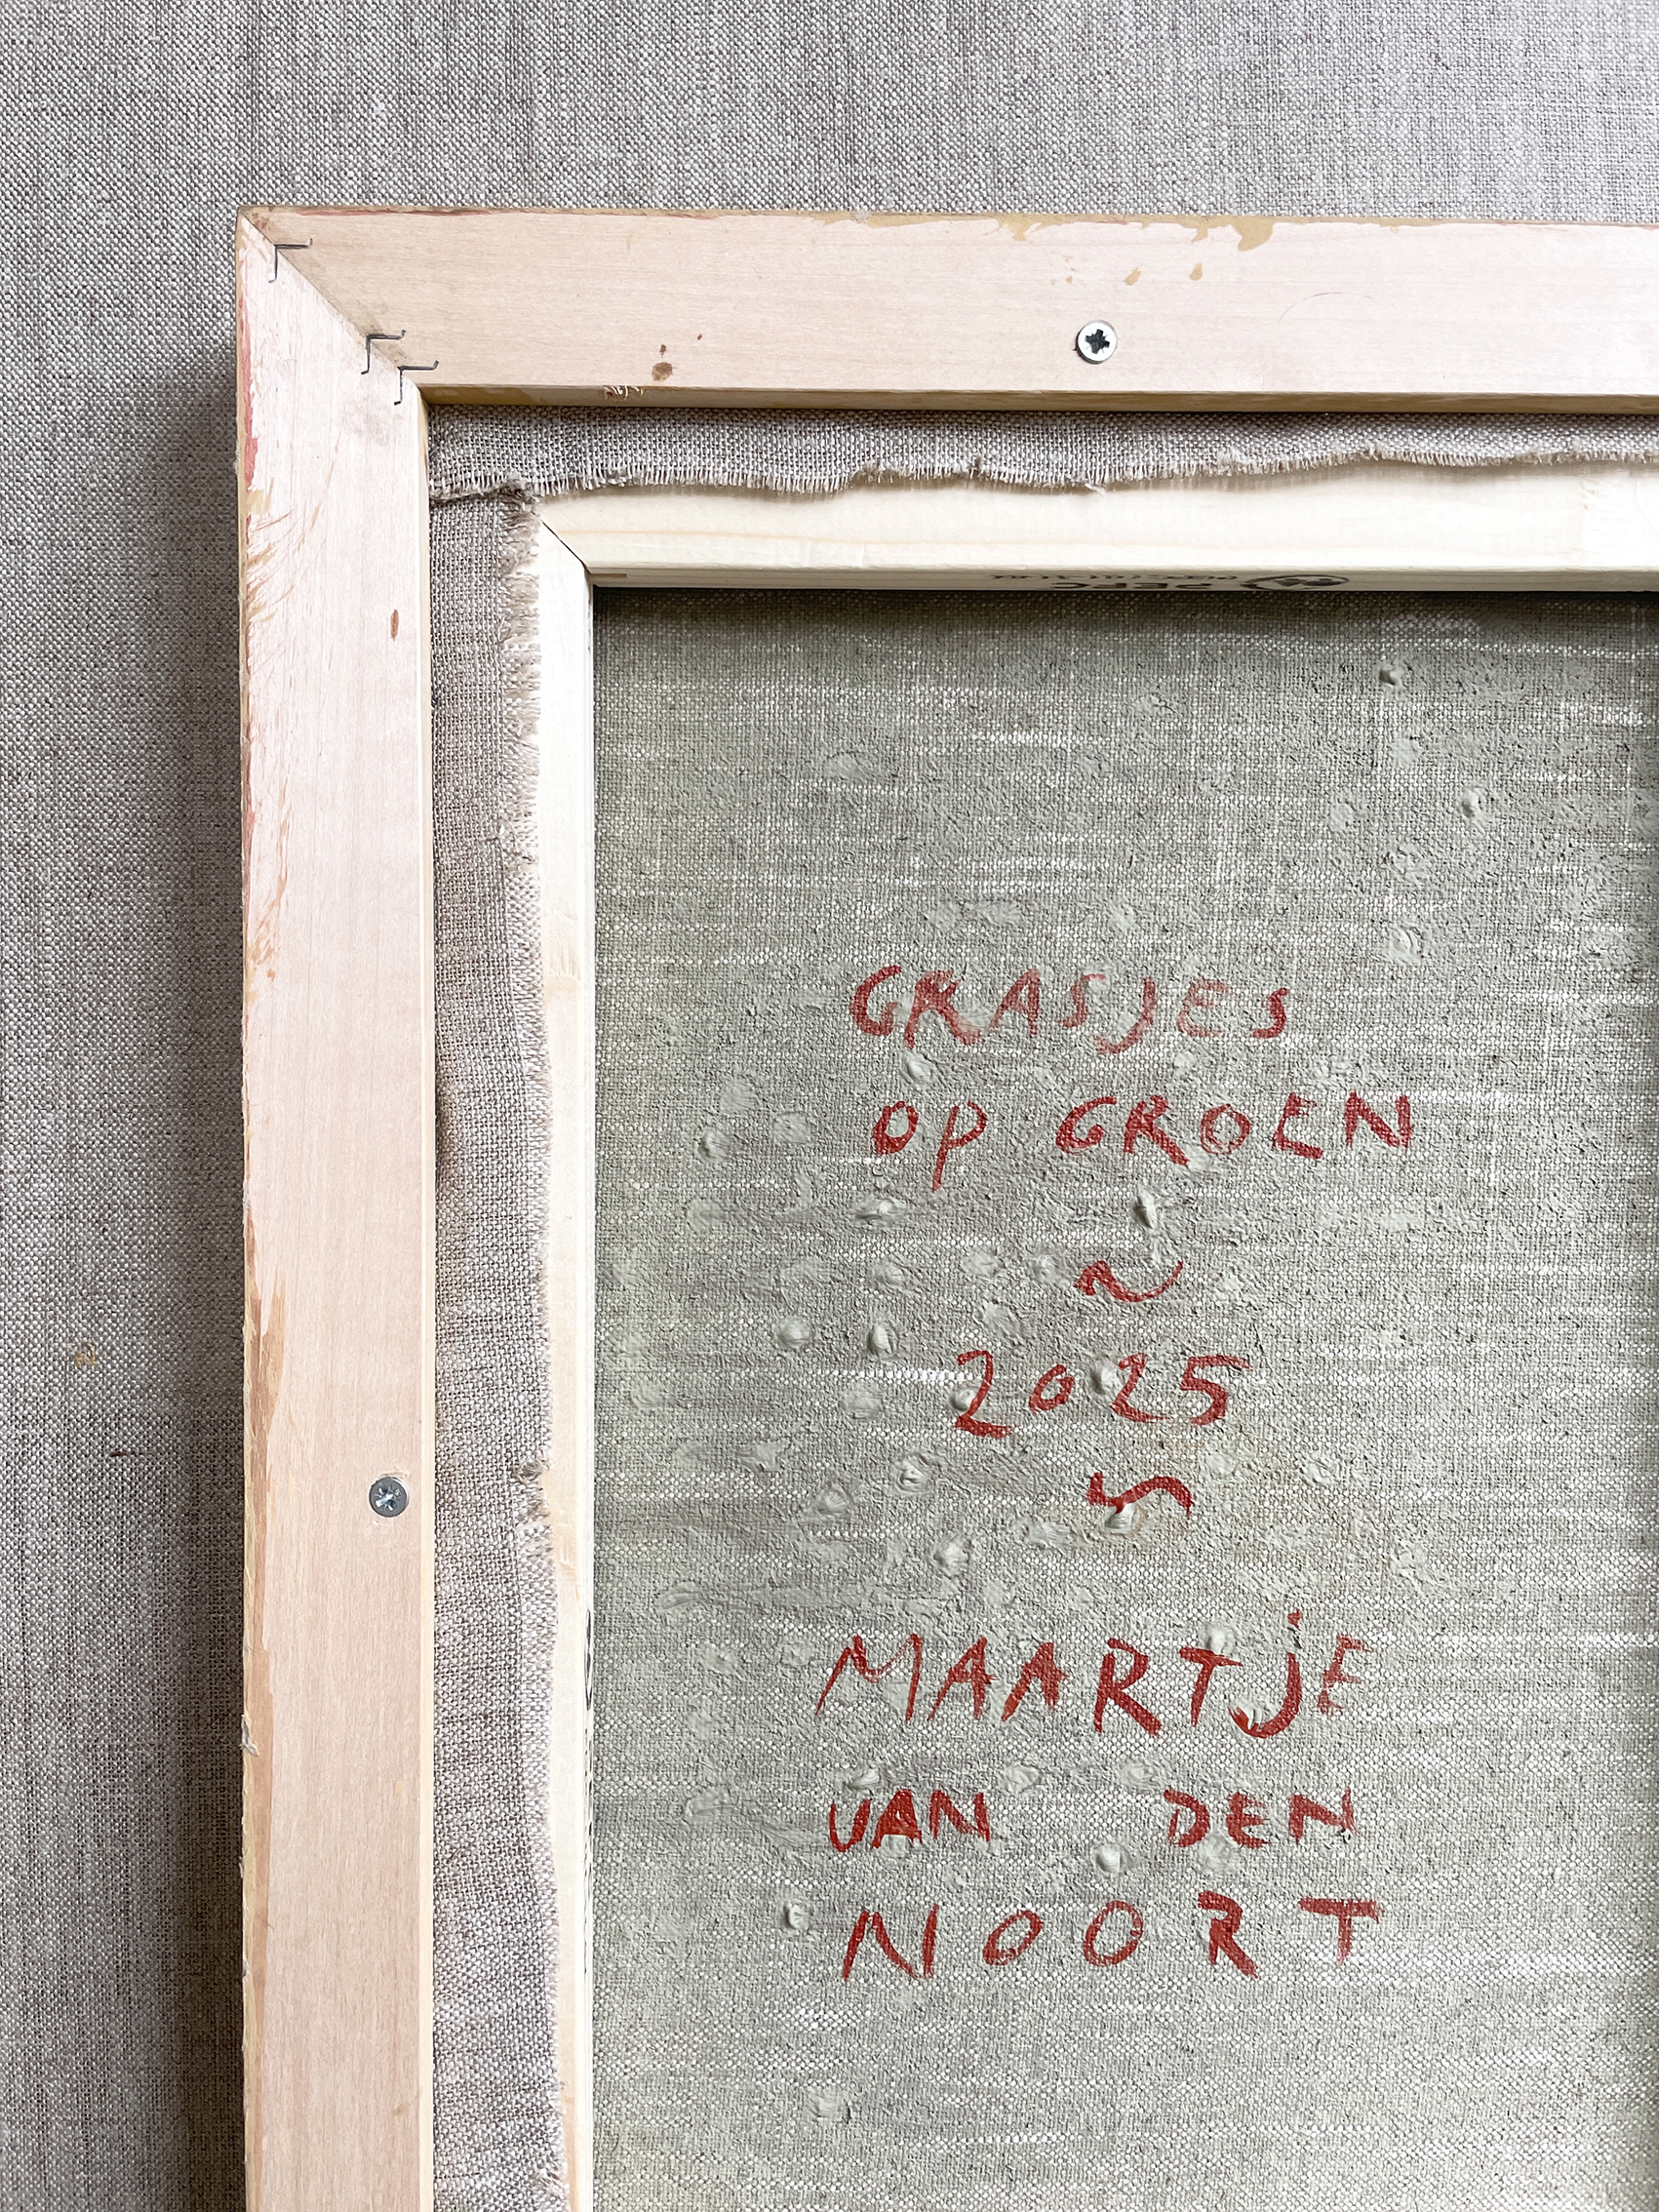 GRASJES
OP GROEN
~
2025
~
MAARTJE
VAN DEN
NOORT